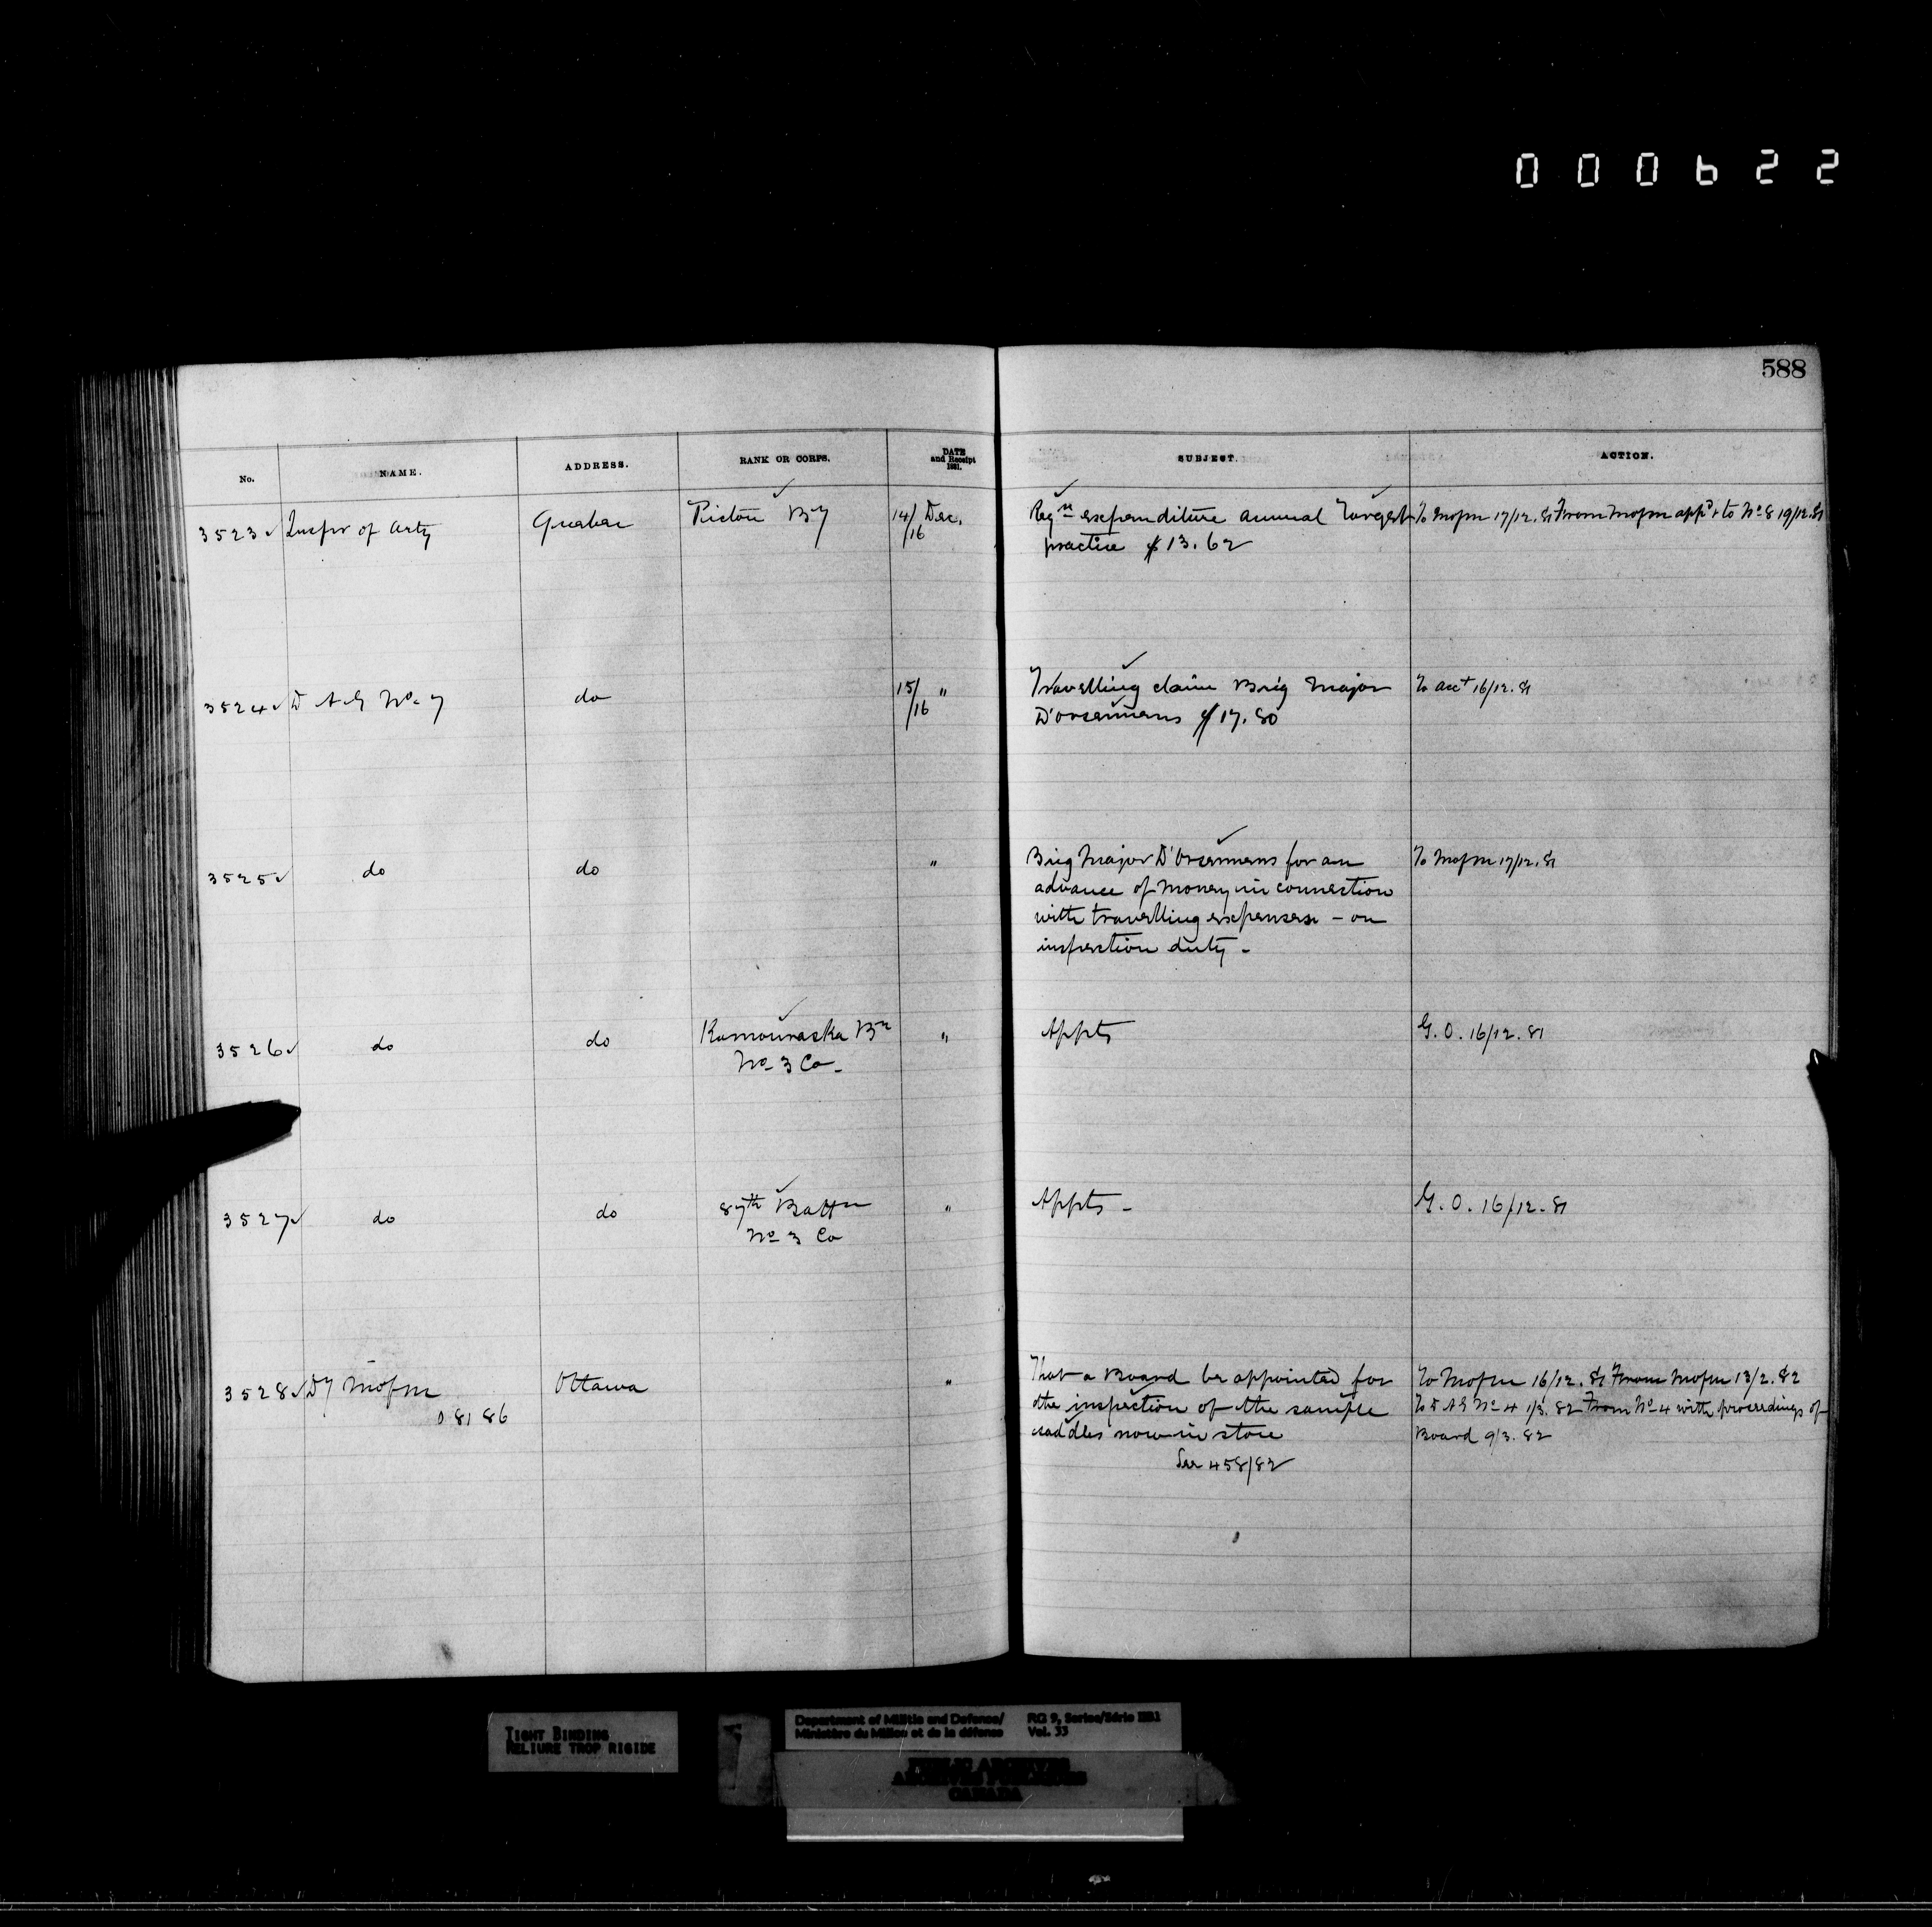 000622
588
No. NAME. ADDRESS. RANK OR CORPS. DATE and Receipt 1881. SUBJECT. ACTION.
3523 Inspr of Arty Quebec Pictou By 14/16 Dec. Regn expenditure annual Target To Mofm 17/12.81 From Mofm appd & to No 8 19/12.81
practice $13.62
3524 D A G No. 7 do 15/16 " Travelling claim Brig Major To Acct 16/12.81
D'Orsennens $17.80
3525 do do " Brig Major D'Orsennens for an To Mofm 17/12.81
advance of money in connection
with travelling expenses - on
inspection duty -
3526 do do Kamouraska Bn " Appts G.O. 16/12.81
No 3 Co -
3527 do do 87th Battn " Appts - G.O. 16/12.81
No 3 Co
3528 Dy Mofm Ottawa " That a Board be appointed for To Mofm 16/12.81 From Mofm 13/2.82
08186 the inspection of the sample To D A G No 4 1/3.82 From No 4 with proceedings of
saddles now in store Board 9/3.82
See 458/82
TIGHT BINDING
RELIURE TROP RIGIDE
Department of Militia and Defence/ RG 9, Series/Série IIB1
Ministère du Milice et de la défense Vol. 33
PUBLIC ARCHIVES
ARCHIVES PUBLIQUES
CANADA